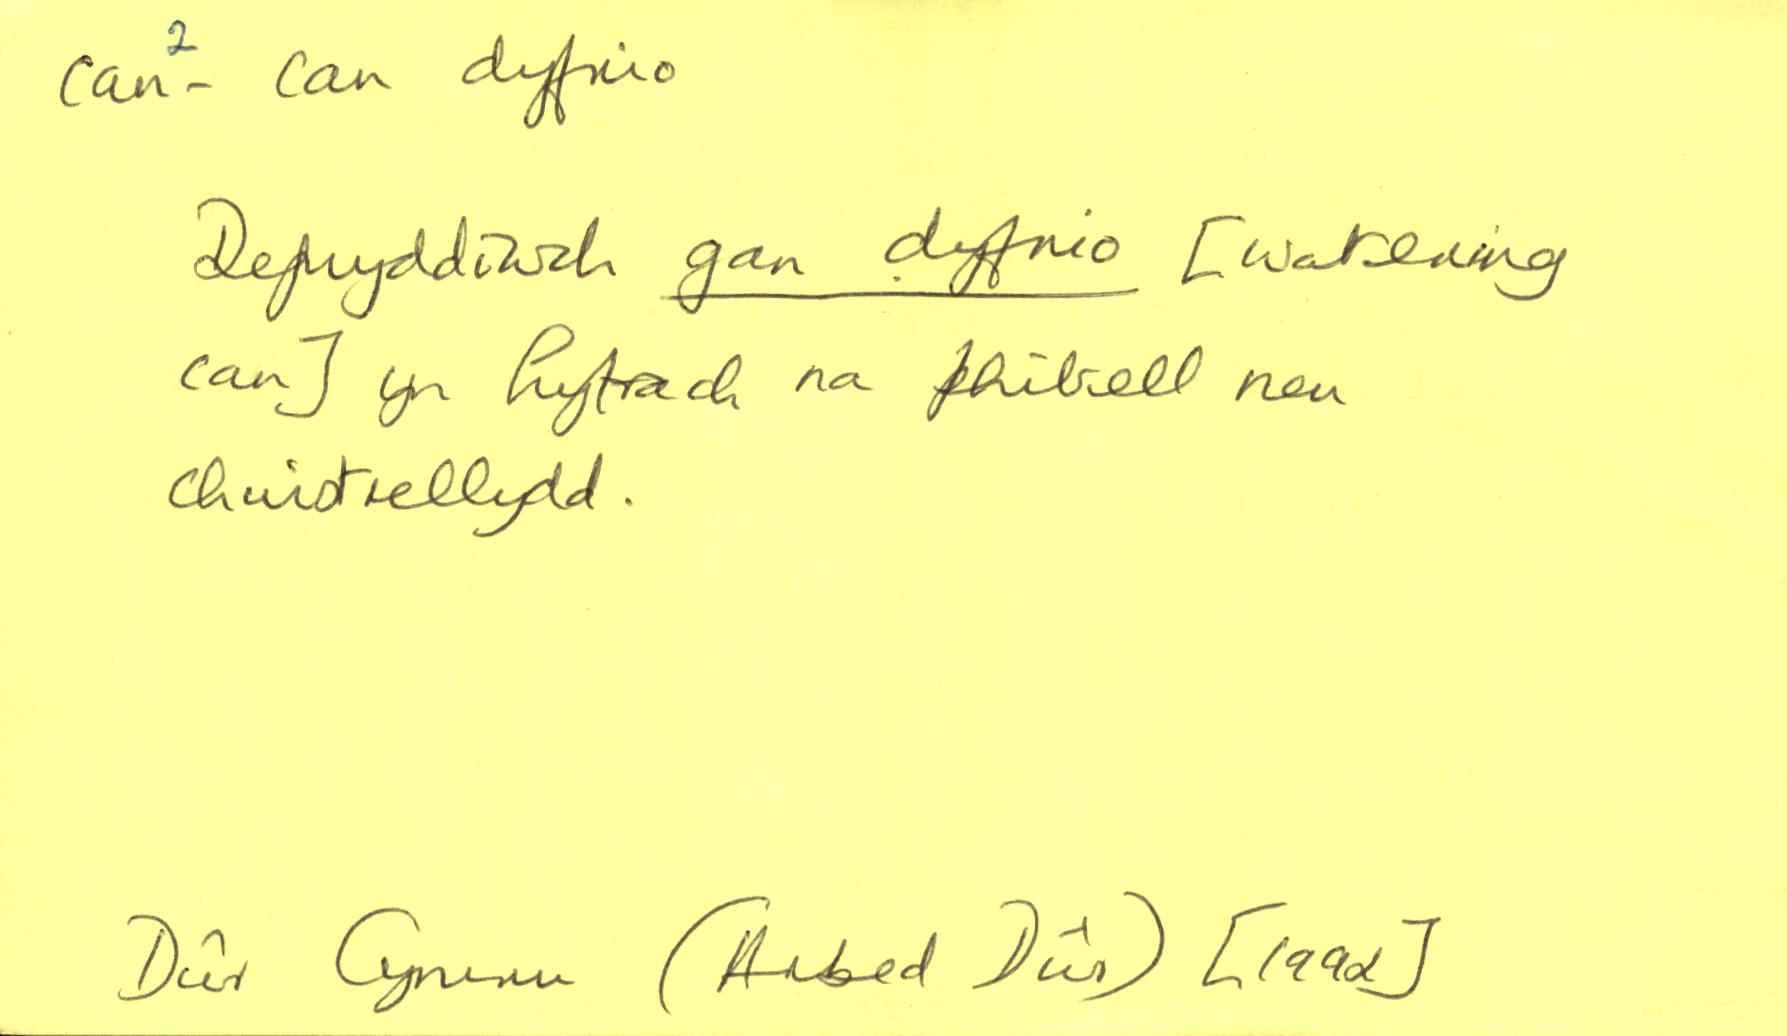 can²- can dyfrio
Defnyddiwch gan dyfrio [watering
can] yn hytrach na phibell neu
chwistrellydd.
Dŵr Cymru (Arbed Dŵr) [1992]